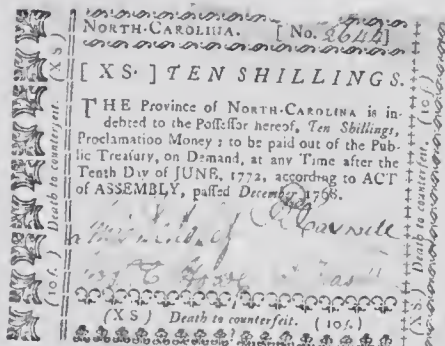 NORTH-CAROLINA. [ No. 2644]
[ XS. ] TEN SHILLINGS.
THE Province of NORTH-CAROLINA is in-
debted to the Poſſeſſor hereof, Ten Shillings,
Proclamation Money ; to be paid out of the Pub-
lic Treaſury, on Demand, at any Time after the
Tenth Day of JUNE, 1772, according to ACT
of ASSEMBLY, paſſed December 1768.
(XS) Death to counterfeit. (10ſ.)
(10ſ.) Death to counterfeit. (XS)
(XS) Death to counterfeit. (10ſ.)